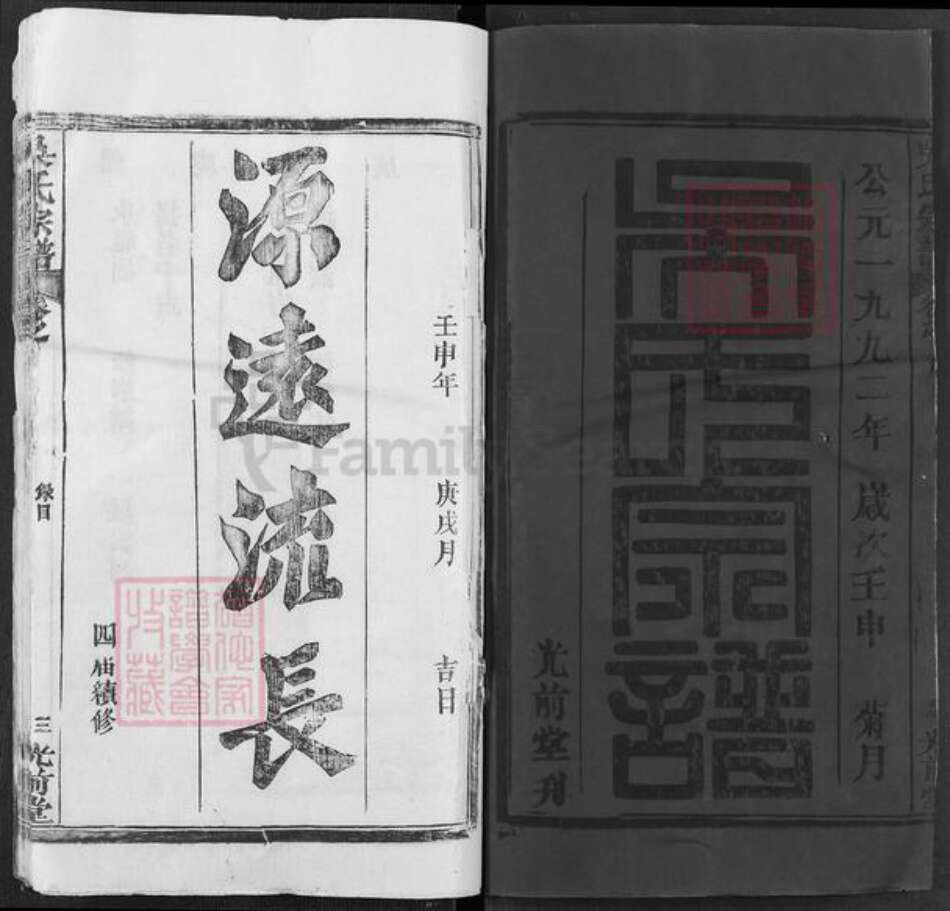 公元一九九二年 歲次壬申 菊月
吳氏宗譜
光前堂刋
壬申年 庚戌月 吉日
源遠流長
四庙續修
吳氏宗譜
錄目
三
光前堂
FamilySearch